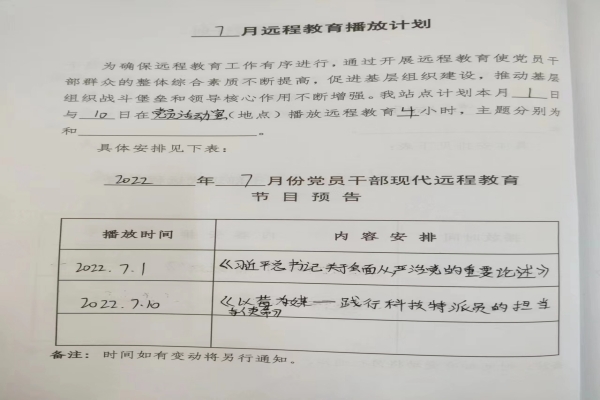 7 月远程教育播放计划
为确保远程教育工作有序进行，通过开展远程教育使党员干
部群众的整体综合素质不断提高，促进基层组织建设，推动基层
组织战斗堡垒和领导核心作用不断增强。我站点计划本月 1 日
与 10 日在党员活动室(地点)播放远程教育 4 小时，主题分别为
和 。
具体安排见下表：
2022 年 7 月份党员干部现代远程教育
节目预告
播放时间 内容安排
2022.7.1 《习近平总书记关于全面从严治党的重要论述》
2022.7.10 《以莓为媒——践行科技特派员的担当
与使命》
备注： 时间如有变动将另行通知。